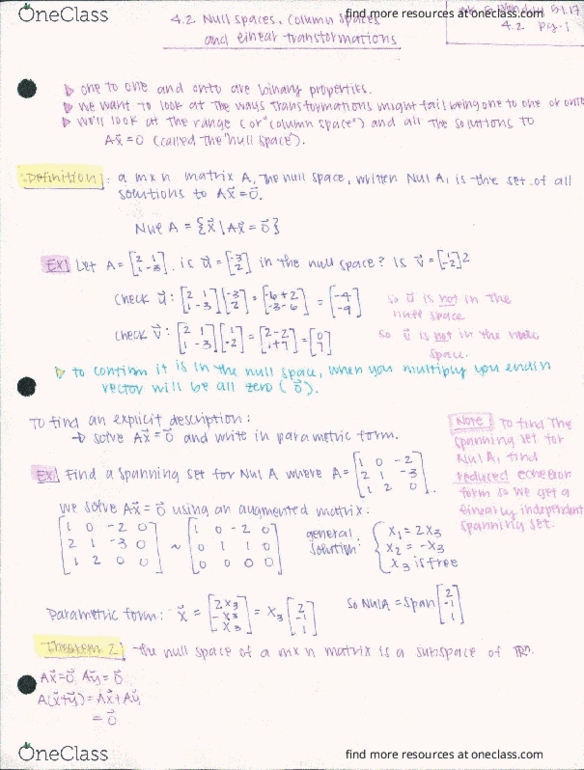 OneClass
find more resources at oneclass.com
4.2 Null spaces, column spaces
and linear transformations
4.2 pg. 1
▷ one to one and onto are binary properties.
▷ we want to look at the ways transformations might fail being one to one or onto
▷ we'll look at the range (or "column space") and all the solutions to
Ax⃗=0 (called the "null space").
Definition: a m x n matrix A, the null space, written Nul A, is the set of all
solutions to Ax⃗=0⃗.
Nul A = {x⃗ | Ax⃗ = 0⃗}
EX] Let A = [2 1; 1 -3]. is u⃗ = [-3; 2] in the null space? Is v⃗ = [1; -2]?
check u⃗: [2 1; 1 -3] [-3; 2] = [-6+2; -3-6] = [-4; -9] so u⃗ is not in the
null space
check v⃗: [2 1; 1 -3] [1; -2] = [2-2; 1+7] = [0; 7] so v⃗ is not in the null
space.
▷ to confirm it is in the null space, when you multiply you end in
vector will be all zero (0⃗).
To find an explicit description:
→ solve Ax⃗=0⃗ and write in parametric form.
Note: To find the
spanning set for
Nul A, find
reduced echelon
form so we get a
linearly independent
spanning set.
EX] Find a spanning set for Nul A where A = [1 0 -2; 2 1 -3; 1 2 0].
we solve Ax⃗=0⃗ using an augmented matrix:
[1 0 -2 0; 2 1 -3 0; 1 2 0 0] ~ [1 0 -2 0; 0 1 1 0; 0 0 0 0] general solution: { x₁ = 2x₃
x₂ = -x₃
x₃ is free
Parametric form: x⃗ = [2x₃; -x₃; x₃] = x₃ [2; -1; 1] so Nul A = span [2; -1; 1]
Theorem 2] the null space of a m x n matrix is a subspace of ℝⁿ.
Ax⃗=0⃗ Ay⃗=0⃗
A(x⃗+y⃗) = Ax⃗+Ay⃗
= 0⃗
OneClass
find more resources at oneclass.com